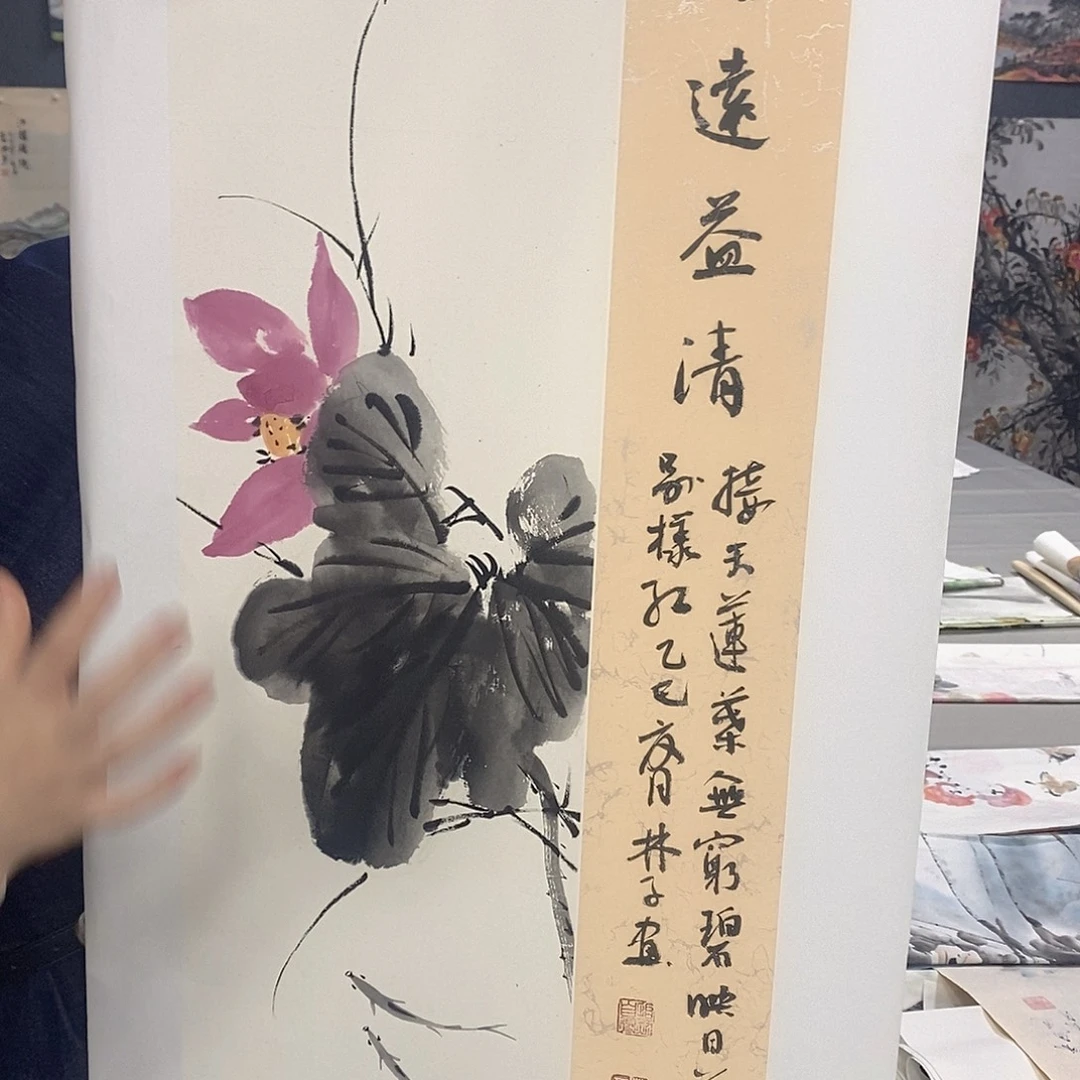 遠益清
接天蓮葉無窮碧映日
別樣紅乙巳夏月林子画